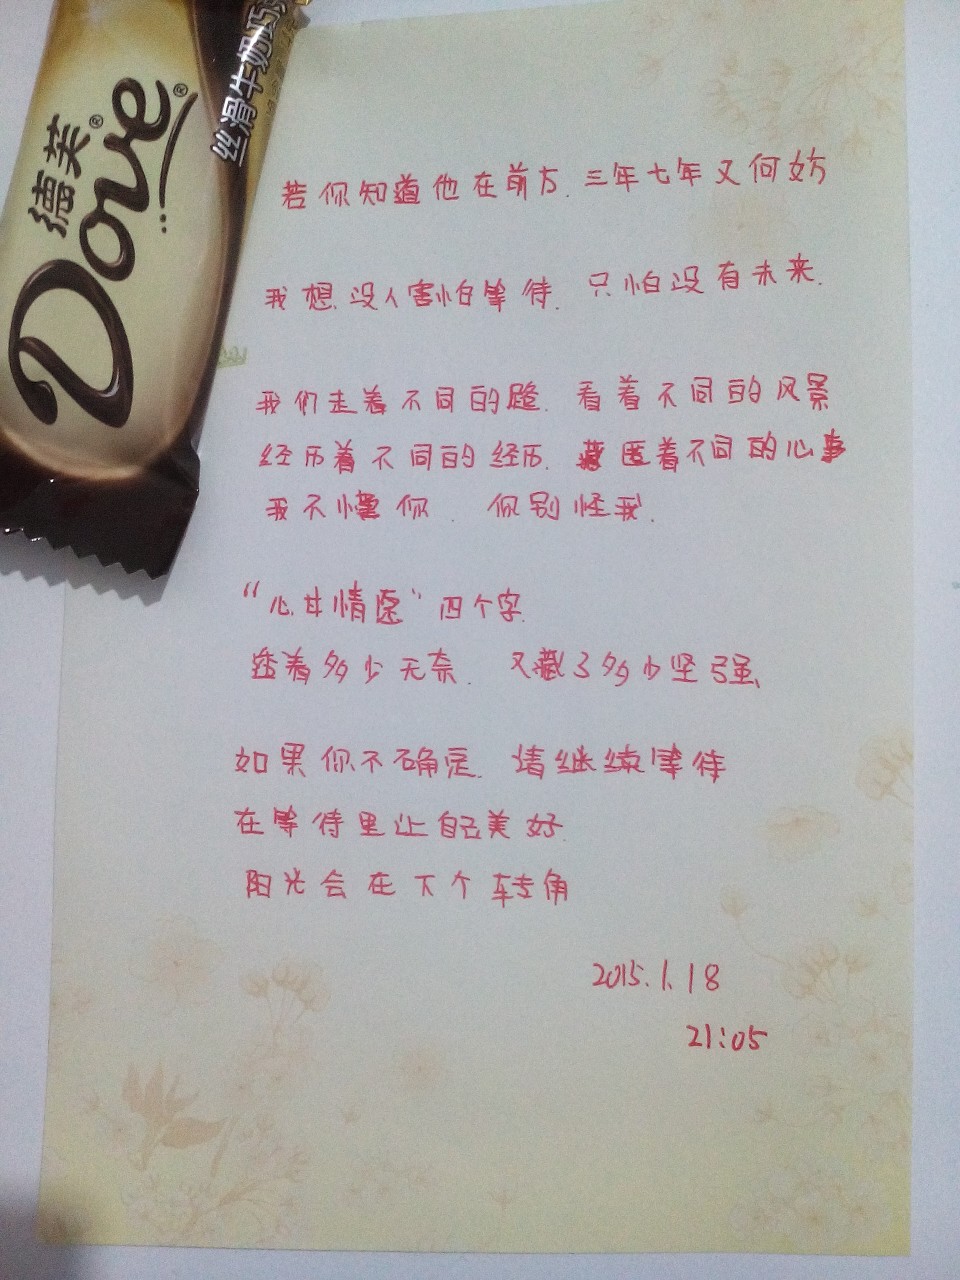 德芙®
Dove®
丝滑牛奶巧
若你知道他在前方.三年七年又何妨
我想没人害怕等待.只怕没有未来.
我们走着不同的路.看着不同的风景
经历着不同的经历.藏匿着不同的心事
我不懂你.你别怪我.
“心甘情愿”四个字
透着多少无奈.又藏了多少坚强
如果你不确定.请继续等待
在等待里让自己美好.
阳光会在下个转角
2015.1.18
21:05